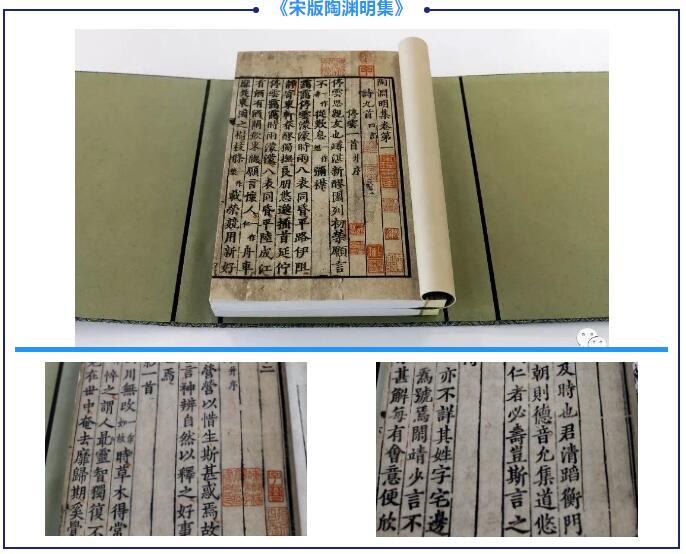 《宋版陶渊明集》
陶淵明集卷第一
詩九首 四言
停雲一首 并序
停雲思親友也罇湛新醪園列初榮願言
不從歎息彌襟
靄靄停雲濛濛時雨八表同昏平路伊阻
靜寄東軒春醪獨撫良朋悠邈搔首延佇
停雲靄靄時雨濛濛八表同昏平陸成江
有酒有酒閑飲東願言懷人舟車
靡從東園之樹枝條載榮競用新好
二
并序
營營以惜生斯甚惑焉故
言神辨自然以釋之好事
焉
一首
川無改時草木得常
悴之謂人最靈智獨復不
見在世中奄去靡歸期奚覺
及時也君清蹈衡門
朝則德音允集道悠
仁者必壽豈斯言之
亦不詳其姓字宅邊
爲號焉閑靖少言不
甚解每有會意便欣